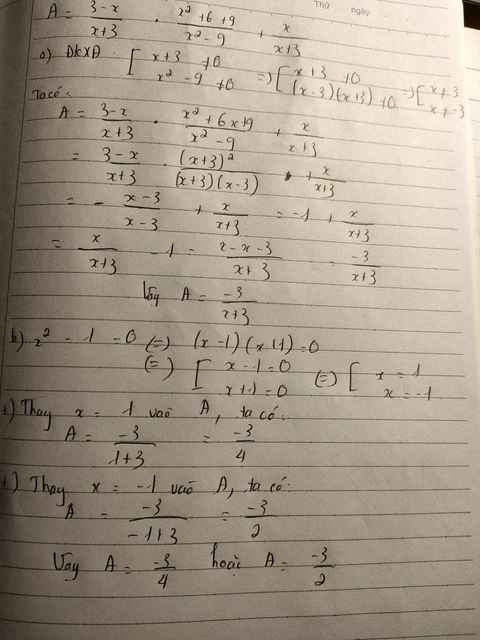 Thứ ngày
A = (3-x)/(x+3) . (x² + 6 + 9)/(x² - 9) + x/(x+3)
a) ĐKXĐ. [ x+3 ≠0 ; x² - 9 ≠0 => [ x+3 ≠0 ; (x-3)(x+3) ≠0 => [ x≠3 ; x≠-3
Ta có:
A = (3-x)/(x+3) . (x² + 6x+9)/(x² - 9) + x/(x+3)
= (3-x)/(x+3) . (x+3)²/((x+3)(x-3)) + x/(x+3)
= - (x-3)/(x-3) + x/(x+3) = -1 + x/(x+3)
= x/(x+3) - 1 = (x-x-3)/(x+3) = -3/(x+3)
Vậy A = -3/(x+3)
b) x² - 1 = 0 (=) (x-1)(x+1)=0
(=) [ x-1=0 ; x+1=0 (=) [ x = 1 ; x = -1
+) Thay x = 1 vaò A, ta có:
A = -3/(1+3) = -3/4
+) Thay x = -1 vaò A, ta có:
A = -3/(-1+3) = -3/2
Vậy A = -3/4 hoặc A = -3/2